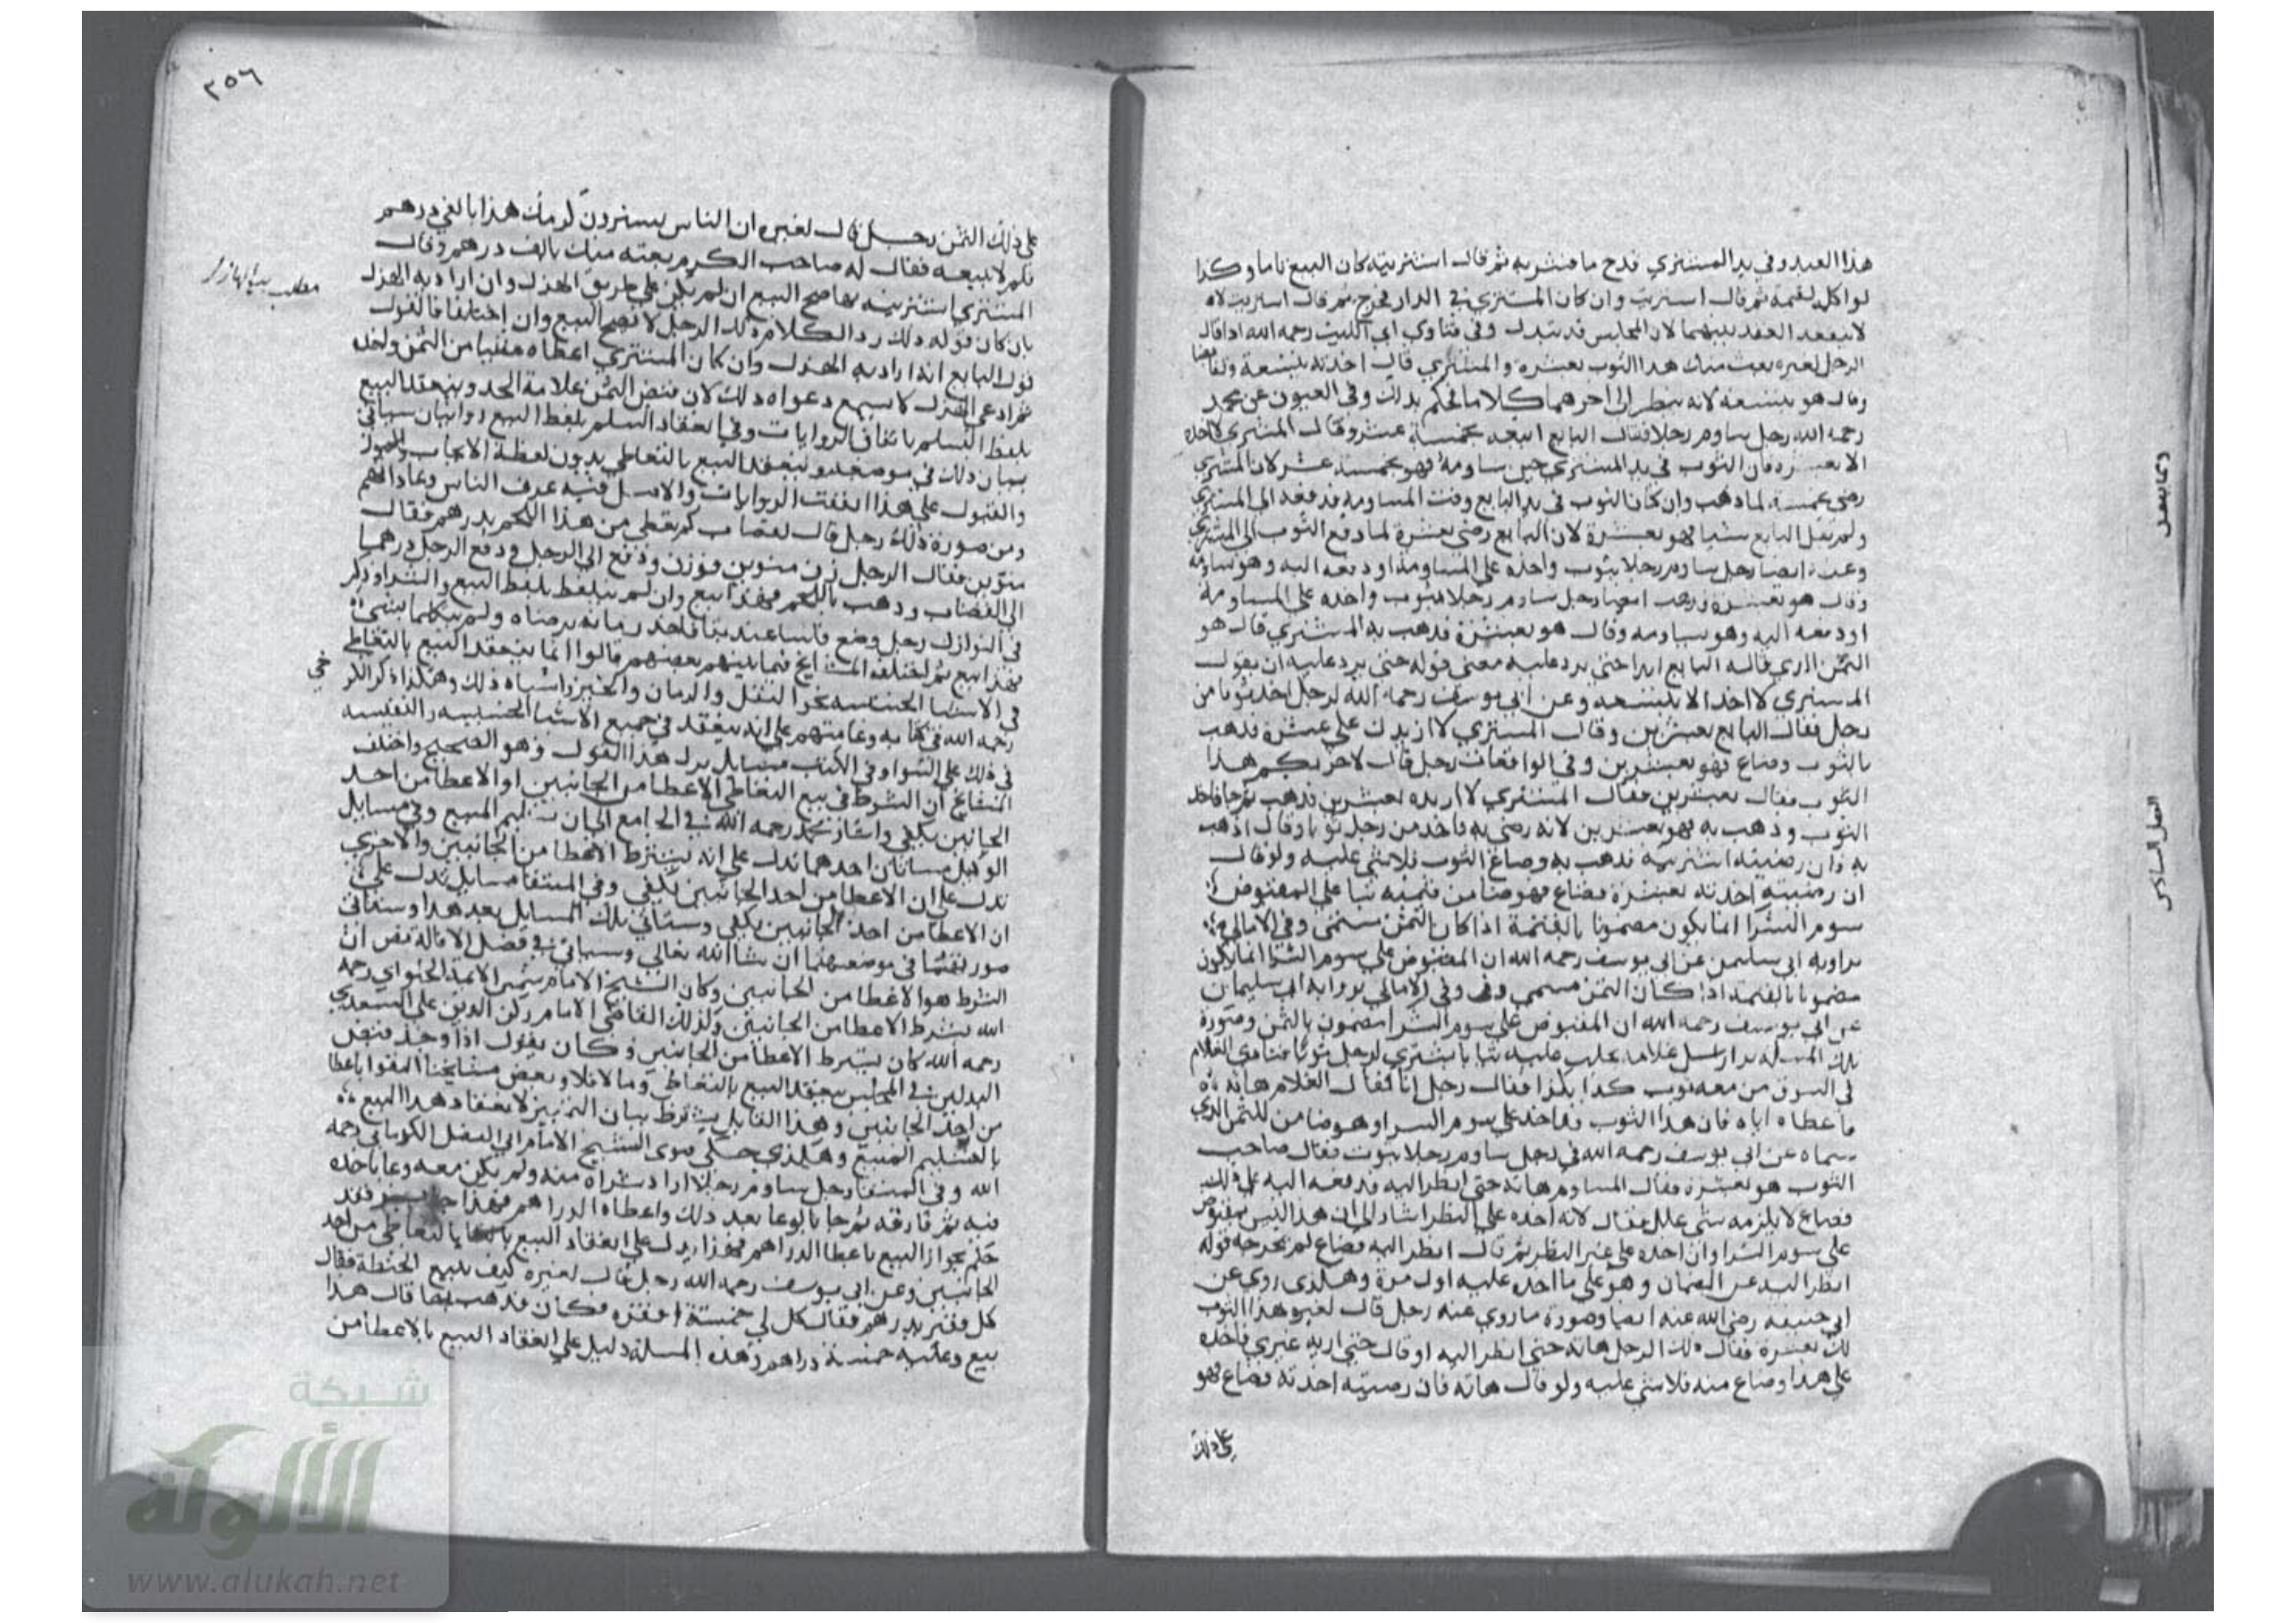 هذا العبد وفي يد المشتري قدح ما فشربه ثم قال اشتريته كان البيع تاما وكذا
لو اكل لقمة ثم قال اشتريت وان كان المشتري في الدار فخرج ثم قال اشتريت لا
لا ينعقد العقد بينهما لان المجلس قد تبدل وفي فتاوي ابي الليث رحمه الله اذا قال
الرجل لغيره بعت منك هذا الثوب بعشرة والمشتري قال اخذته بتسعة
وقال هو بتسعة لانه ينظر الى اخرهما كلاما فحكم بذلك وفي العيون عن محمد
رحمه الله رجل ساوم رجلا فقال البايع ابيعه بخمسة عشر وقال المشتري لا اخذه
الا بعشرة فان الثوب في يد المشتري حين ساومه فهو بخمسة عشر لان المشتري
رضي بخمسة لما ذهب وان كان الثوب في يد البايع وقت المساومة فدفعه الى المشتري
ولم يقل البايع شيا فهو بعشرة لان البايع رضي بعشرة لما دفع الثوب الى المشتري
وعنه ايضا رجل ساوم رجلا بثوب واخذه على المساومة او دفعه اليه وهو يساومه
وقال هو بعشرة فذهب ايضا رجل ساوم رجلا بثوب واخذه علي المساومة
او دفعه اليه وهو يساومه وقال هو بعشرة فذهب به المشتري قال هو
الثمن الذي قاله البايع ابدا حتى يرد عليه معنى قوله حتى يرد عليه ان يقول
المشتري لا اخذ الا بتسعة وعن ابي يوسف رحمه الله لرجل اخذ ثوبا من
رجل فقال البايع بعشرين وقال المشتري لا ازيدك علي عشرة فذهب
بالثوب وضاع فهو بعشرين وفي الواقعات رجل قال لاخر بكم هذا
الثوب فقال بعشرين فقال المشتري لا اريده بعشرين فذهب ثم جا فاخذ
الثوب وذهب به فهو بعشرين لانه رضي به فاخذ من رجل ثوبا وقال اذهب
به فان رضيته اشتريته فذهب به وضاع الثوب فلا شي عليه ولو قال
ان رضيته اخذته بعشرة فضاع فهو ضامن قيمته بنا علي المقبوض
سوم الشرا انما يكون مضمونا بالقيمة اذا كان الثمن مسمى وفي الامالي
برواية ابي سليمن عن ابي يوسف رحمه الله ان المقبوض علي سوم الشرا انما يكون
مضمونا بالقيمة اذا كان الثمن مسمي وفي الامالي برواية ابي سليمان
عن ابي يوسف رحمه الله ان المقبوض علي سوم الشرا مضمون بالثمن وصورة
تلك المسئلة بزاز ارسل غلامه يطلب ثيابا يشتري لرجل ثوبا فنادي الغلام
في السوق من معه ثوب كذا بكذا فقال رجل انا فقال الغلام هاته
فاعطاه اياه فان هذا الثوب قد اخذ علي سوم الشرا وهو ضامن للثمن الذي
سماه عن ابي يوسف رحمه الله في رجل ساوم رجلا بثوب فقال صاحب
الثوب هو بعشرة فقال المساوم هاته حتى انظر اليه فدفعه اليه علي ذلك
فضاع لا يلزمه شي علل فقال لانه اخذه علي النظر اشار الى ان هذا ليس بمقبوض
علي سوم الشرا وان اخذه على غير النظر ثم قال انظر اليه فضاع لم يخرجه قوله
انظر اليه عن الضمان وهو علي ما اخذه عليه اول مرة وهكذى روي عن
ابي حنيفه رضي الله عنه ايضا وصورة ما روي عنه رجل قال لغيره هذا الثوب
لك بعشرة فقال ذلك الرجل هاته حتى انظر اليه او قال حتى اريه غيري فاخذه
علي هذا وضاع منه فلا شي عليه ولو قال هاته فان رضيته اخذته فضاع فهو
علي ذلك
وفيما يفعل
الفصل السادس
٢٥٦
علي ذلك الثمن رجل قال لغيره ان الناس يشترون كرمك هذا بالفي درهم
فلم لا تبيعه فقال له صاحب الكرم بعته منك بالف درهم وقال
المشتري اشتريته صح البيع ان لم يكن علي طريق الهزل وان اراد به الهزل
بان كان قوله ذلك رد الكلام ذلك الرجل لا يصح البيع وان اختلفا فالقول
قول البايع انه اراد به الهزل وان كان المشتري اعطاه شيا من الثمن واخذ
ثم ادعى الهزل لا يسمع دعواه ذلك لان قبض الثمن علامة الجد وينعقد البيع
بلفظ السلم باتفاق الروايات وفي انعقاد السلم بلفظ البيع روايتان سياتي
بيان ذلك في موضعه وينعقد البيع بالتعاطي بدون لفظة الايجاب
والقبول علي هذا اتفقت الروايات والاصل فيه عرف الناس وعاداتهم
ومن صورة ذلك رجل قال لقصاب كم تعطي من هذا اللحم بدرهم فقال
منوين فقال الرجل زن منوين فوزن ودفع الى الرجل ودفع الرجل درهما
الى القصاب وذهب باللحم فهذا بيع وان لم يتلفظ بلفظ البيع والشرا وذكر
في النوازل رجل وضع فلسا عند بقال فاخذ رمانه برضاه ولم يتكلما بشي
فهذا بيع ثم اختلف المشايخ فيما بينهم بعضهم قالوا انما ينعقد البيع بالتعاطي
في الاشيا الخسيسه نحو البقل والرمان والخبز واشباه ذلك وهكذا ذكر الكرخي
رحمه الله في كتابه وعامتهم علي انه ينعقد في جميع الاشيا الخسيسه والنفيسه
في ذلك علي السوا وفي الكتاب مسايل تدل هذا القول وهو الصحيح واختلف
المشايخ ان الشرط في بيع التعاطي الاعطا من الجانبين او الاعطا من احد
الجانبين يكفي واشار محمد رحمه الله في الجامع الى ان تسليم المبيع وفي مسايل
الوكيل مسالتان احدهما تدل علي انه يشترط الاعطا من الجانبين والاخرى
تدل علي ان الاعطا من احد الجانبين يكفي وفي المنتقا مسايل تدل علي
ان الاعطا من احد الجانبين يكفي وستاتي تلك المسايل بعد هذا وستاتي
صورتهما في موضعهما ان شا الله تعالى وسياتي في فصل الاقالة نص ان
الشرط هو الاعطا من الجانبين وكان الشيخ الامام شمس الائمة الحلواي رحمه
الله يشترط الاعطا من الجانبين وكذلك القاضي الامام ركن الدين علي السغدي
رحمه الله كان يشترط الاعطا من الجانبين وكان يقول اذا وجد قبض
البدلين في المجلس ينعقد البيع بالتعاطي وما لا فلا وبعض مشايخنا اكتفوا باعطا
من احد الجانبين وهذا القايل يشترط بيان الثمن لانعقاد هذا البيع
بالتسليم المبيع وهكذى حكى فتوى الشيخ الامام ابي الفضل الكرماني رحمه
الله وفي المنتقا رجل ساوم رجلا اراد شراه منه ولم يكن معه وعا ياخذه
فيه ثم فارقه ثم جا بالوعا بعد ذلك واعطاه الدراهم فهذا جايز فقد
حكم بجواز البيع باعطا الدراهم فهذا يدل علي انعقاد البيع بالتعاطي من احد
الجانبين وعن ابي يوسف رحمه الله رجل قال لغيره كيف تبيع الحنطة فقال
كل قفيز بدرهم فقال كل لي خمسة اقفزه فكال فذهب بها قال هذا
بيع وعليه خمسة دراهم وهذه المسئلة دليل علي انعقاد البيع بالاعطا من
مطلب بيع الهازل
شبكة
الألوكة
www.alukah.net